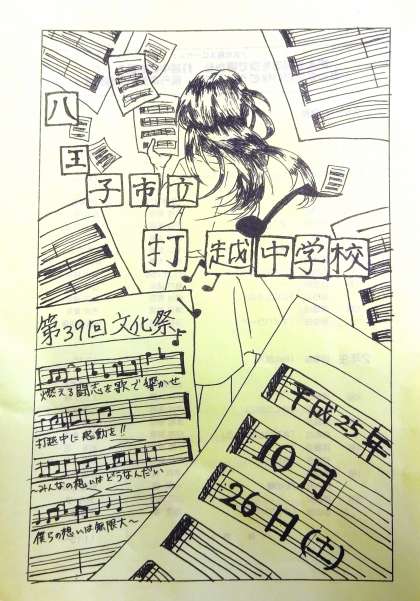 八王子市立
打越中学校
第39回文化祭
燃える闘志を歌で響かせ
打越中に感動を!!
~みんなの想いはどうなんだい
僕らの想いは無限大~
平成25年
10月
26日(土)